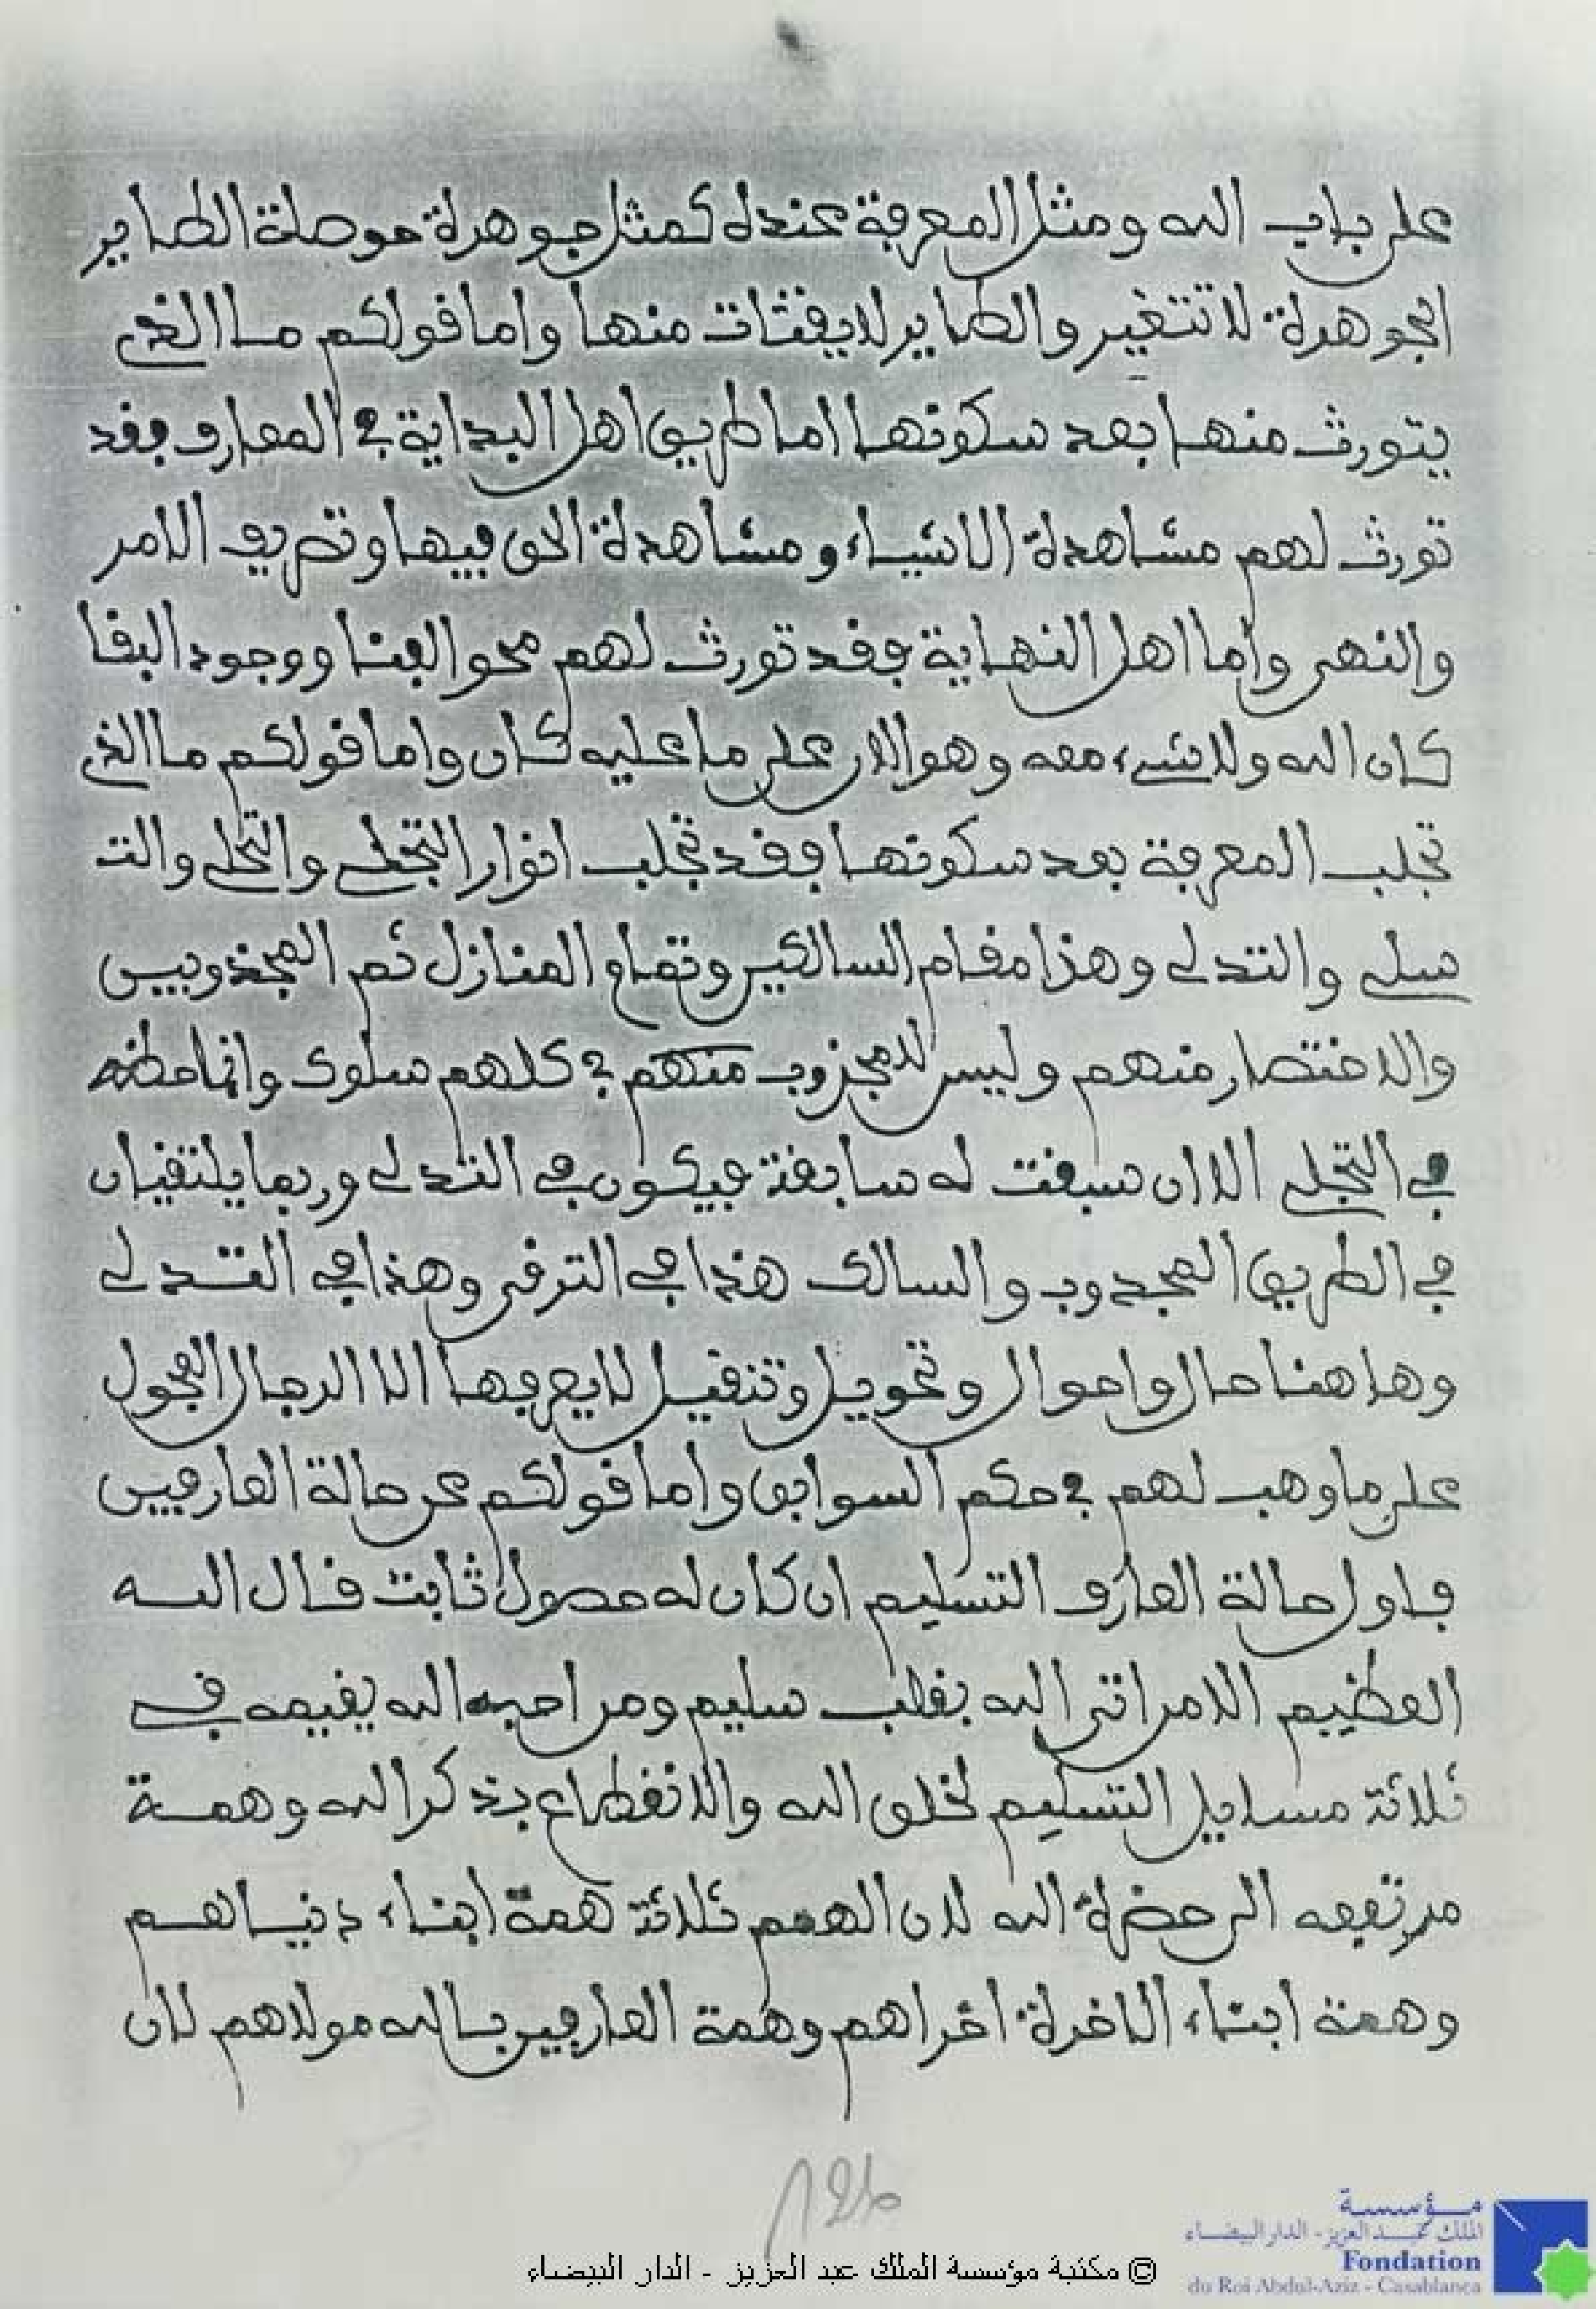 على باب الله ومثل المعرفة عنده كمثل جوهرة حوصلة الطاير
الجوهرة لا تتغير والطاير لا يقتات منها واما قولكم ما الذي
يتورث منها بعد سكونها اما طريق اهل البداية في المعارف فقد
تورث لهم مشاهدة الاشياء ومشاهدة الحق فيها وتصريف الامر
والنهي واما اهل النهاية فقد تورث لهم محو الفنا ووجود البقا
كان الله ولا شيء معه وهو الان على ما عليه كان واما قولكم ما الذي
تجلب المعرفة بعد سكونها فقد تجلب انوار التجلي والتحلي والت
سلي والتدلي وهذا مقام السالكين وقطع المنازل ثم المجذوبين
والاختصار منهم وليس للمجزوب منهم في كلاهم سلوك وانما حظه
في التجلي الا ان سبقت له سابقة فيكون في التدلي وربما يلتقيان
في الطريق المجدوب والسالك هذا في الترقي وهذا في التدلي
وها هنا حال واحوال وتحويل وتنقيل لا يعرفها الا الرجال الفحول
على ما وهب لهم في حكم السوابق واما قولكم عن حالة العارفين
فاول حالة العارف التسليم ان كان له حصول ثابت قال الله
العظيم الا من اتى الله بقلب سليم ومن احبه الله يقيمه في
ثلاثة مسايل التسليم لخلق الله والانقطاع بذكر الله وهمة
مرتفعه الى حضرة الله لان الهمم ثلاثة همة ابناء دنيا لهم
وهمة ابناء الاخرة اخراهم وهمة العارفين بالله مولاهم لان
© مكتبة مؤسسة الملك عبد العزيز - الدار البيضاء
مؤسسة
الملك عبد العزيز - الدار البيضاء
Fondation
du Roi Abdul-Aziz - Casablanca